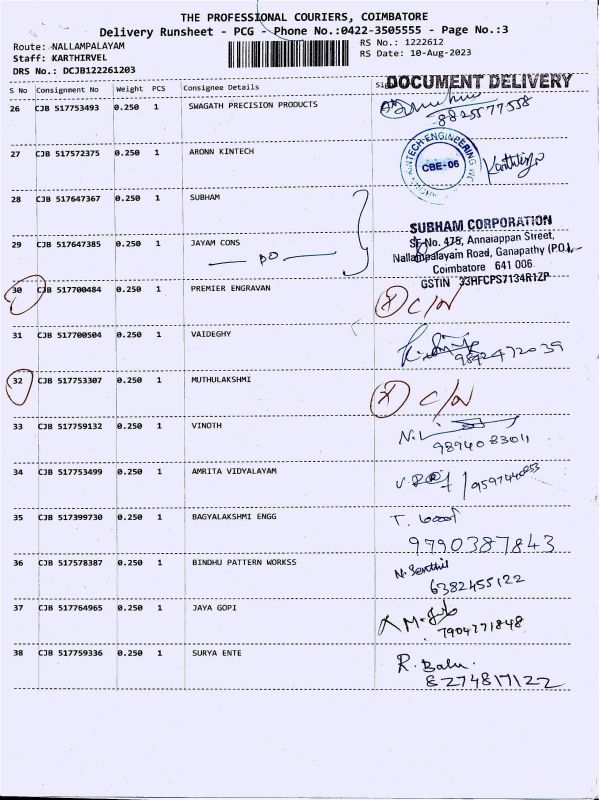 THE PROFESSIONAL COURIERS, COIMBATORE
Delivery Runsheet - PCG - Phone No.:0422-3505555 - Page No.:3
Route: NALLAMPALAYAM
RS No.: 1222612
Staff: KARTHIRVEL
RS Date: 10-Aug-2023
DRS No.: DCJB122261203
DOCUMENT DELIVERY
S No Consignment No Weight PCS Consignee Details
26 CJB 517753493 0.250 1 SWAGATH PRECISION PRODUCTS
8825577558
27 CJB 517572375 0.250 1 ARONN KINTECH
KINTECH ENGINEERING
CBE-06
28 CJB 517647367 0.250 1 SUBHAM
SUBHAM CORPORATION
29 CJB 517647385 0.250 1 JAYAM CONS
DO
SF No. 475, Annaiappan Street,
Nallampalayam Road, Ganapathy (P.O.),
Coimbatore 641 006.
GSTIN 33HFCPS7134R1ZP
30 CJB 517700484 0.250 1 PREMIER ENGRAVAN
C/N
31 CJB 517700504 0.250 1 VAIDEGHY
9842472039
32 CJB 517753307 0.250 1 MUTHULAKSHMI
C/N
33 CJB 517759132 0.250 1 VINOTH
9894083011
34 CJB 517753499 0.250 1 AMRITA VIDYALAYAM
35 CJB 517399730 0.250 1 BAGYALAKSHMI ENGG
9790387843
36 CJB 517578387 0.250 1 BINDHU PATTERN WORKSS
N. Senthil
6382455122
37 CJB 517764965 0.250 1 JAYA GOPI
7904771848
38 CJB 517759336 0.250 1 SURYA ENTE
R. Balu.
8274817122